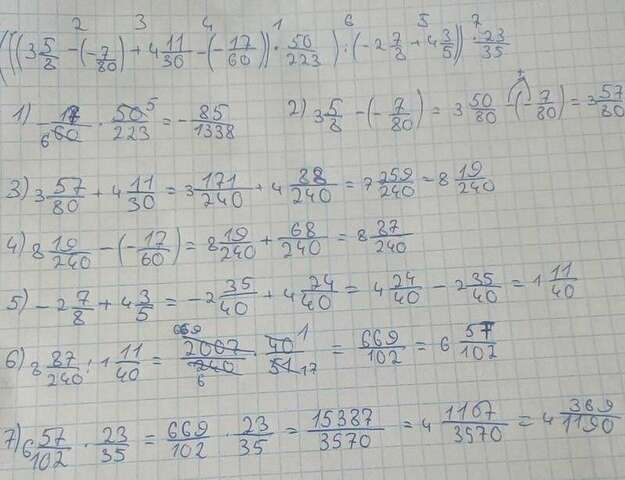 2 3 4 1 6 5 7
(((3 5/8 - (-7/80) + 4 11/30 - (-17/60)) · 50/223) : (-2 7/8 + 4 3/5)) · 23/35
1) - 17/60 6 · 50 5/223 = - 85/1338
2) 3 5/8 - (-7/80) = 3 50/80 - (-7/80) + = 3 57/80
3) 3 57/80 + 4 11/30 = 3 171/240 + 4 88/240 = 7 259/240 = 8 19/240
4) 8 19/240 - (-17/60) = 8 19/240 + 68/240 = 8 87/240
5) - 2 7/8 + 4 3/5 = - 2 35/40 + 4 24/40 = 4 24/40 - 2 35/40 = 1 11/40
6) 8 87/240 : 1 11/40 = 669 2007/240 6 · 40 1/51 17 = 669/102 = 6 57/102
7) 6 57/102 · 23/35 = 669/102 · 23/35 = 15387/3570 = 4 1107/3570 = 4 369/1190